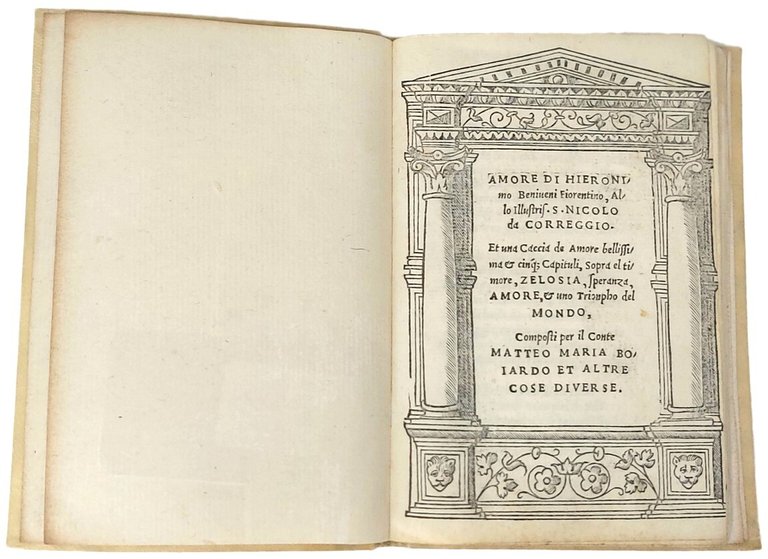 AMORE DI HIERONI/
mo Beniueni Fiorentino, Al/
lo Illustris. S. NICOLO
da CORREGGIO.
Et una Caccia de Amore bellissi/
ma & cinq; Capituli, Sopra el ti/
more, ZELOSIA, speranza,
AMORE, & uno Triumpho del
MONDO,
Composti per il Conte
MATTEO MARIA BO/
IARDO ET ALTRE
COSE DIVERSE.